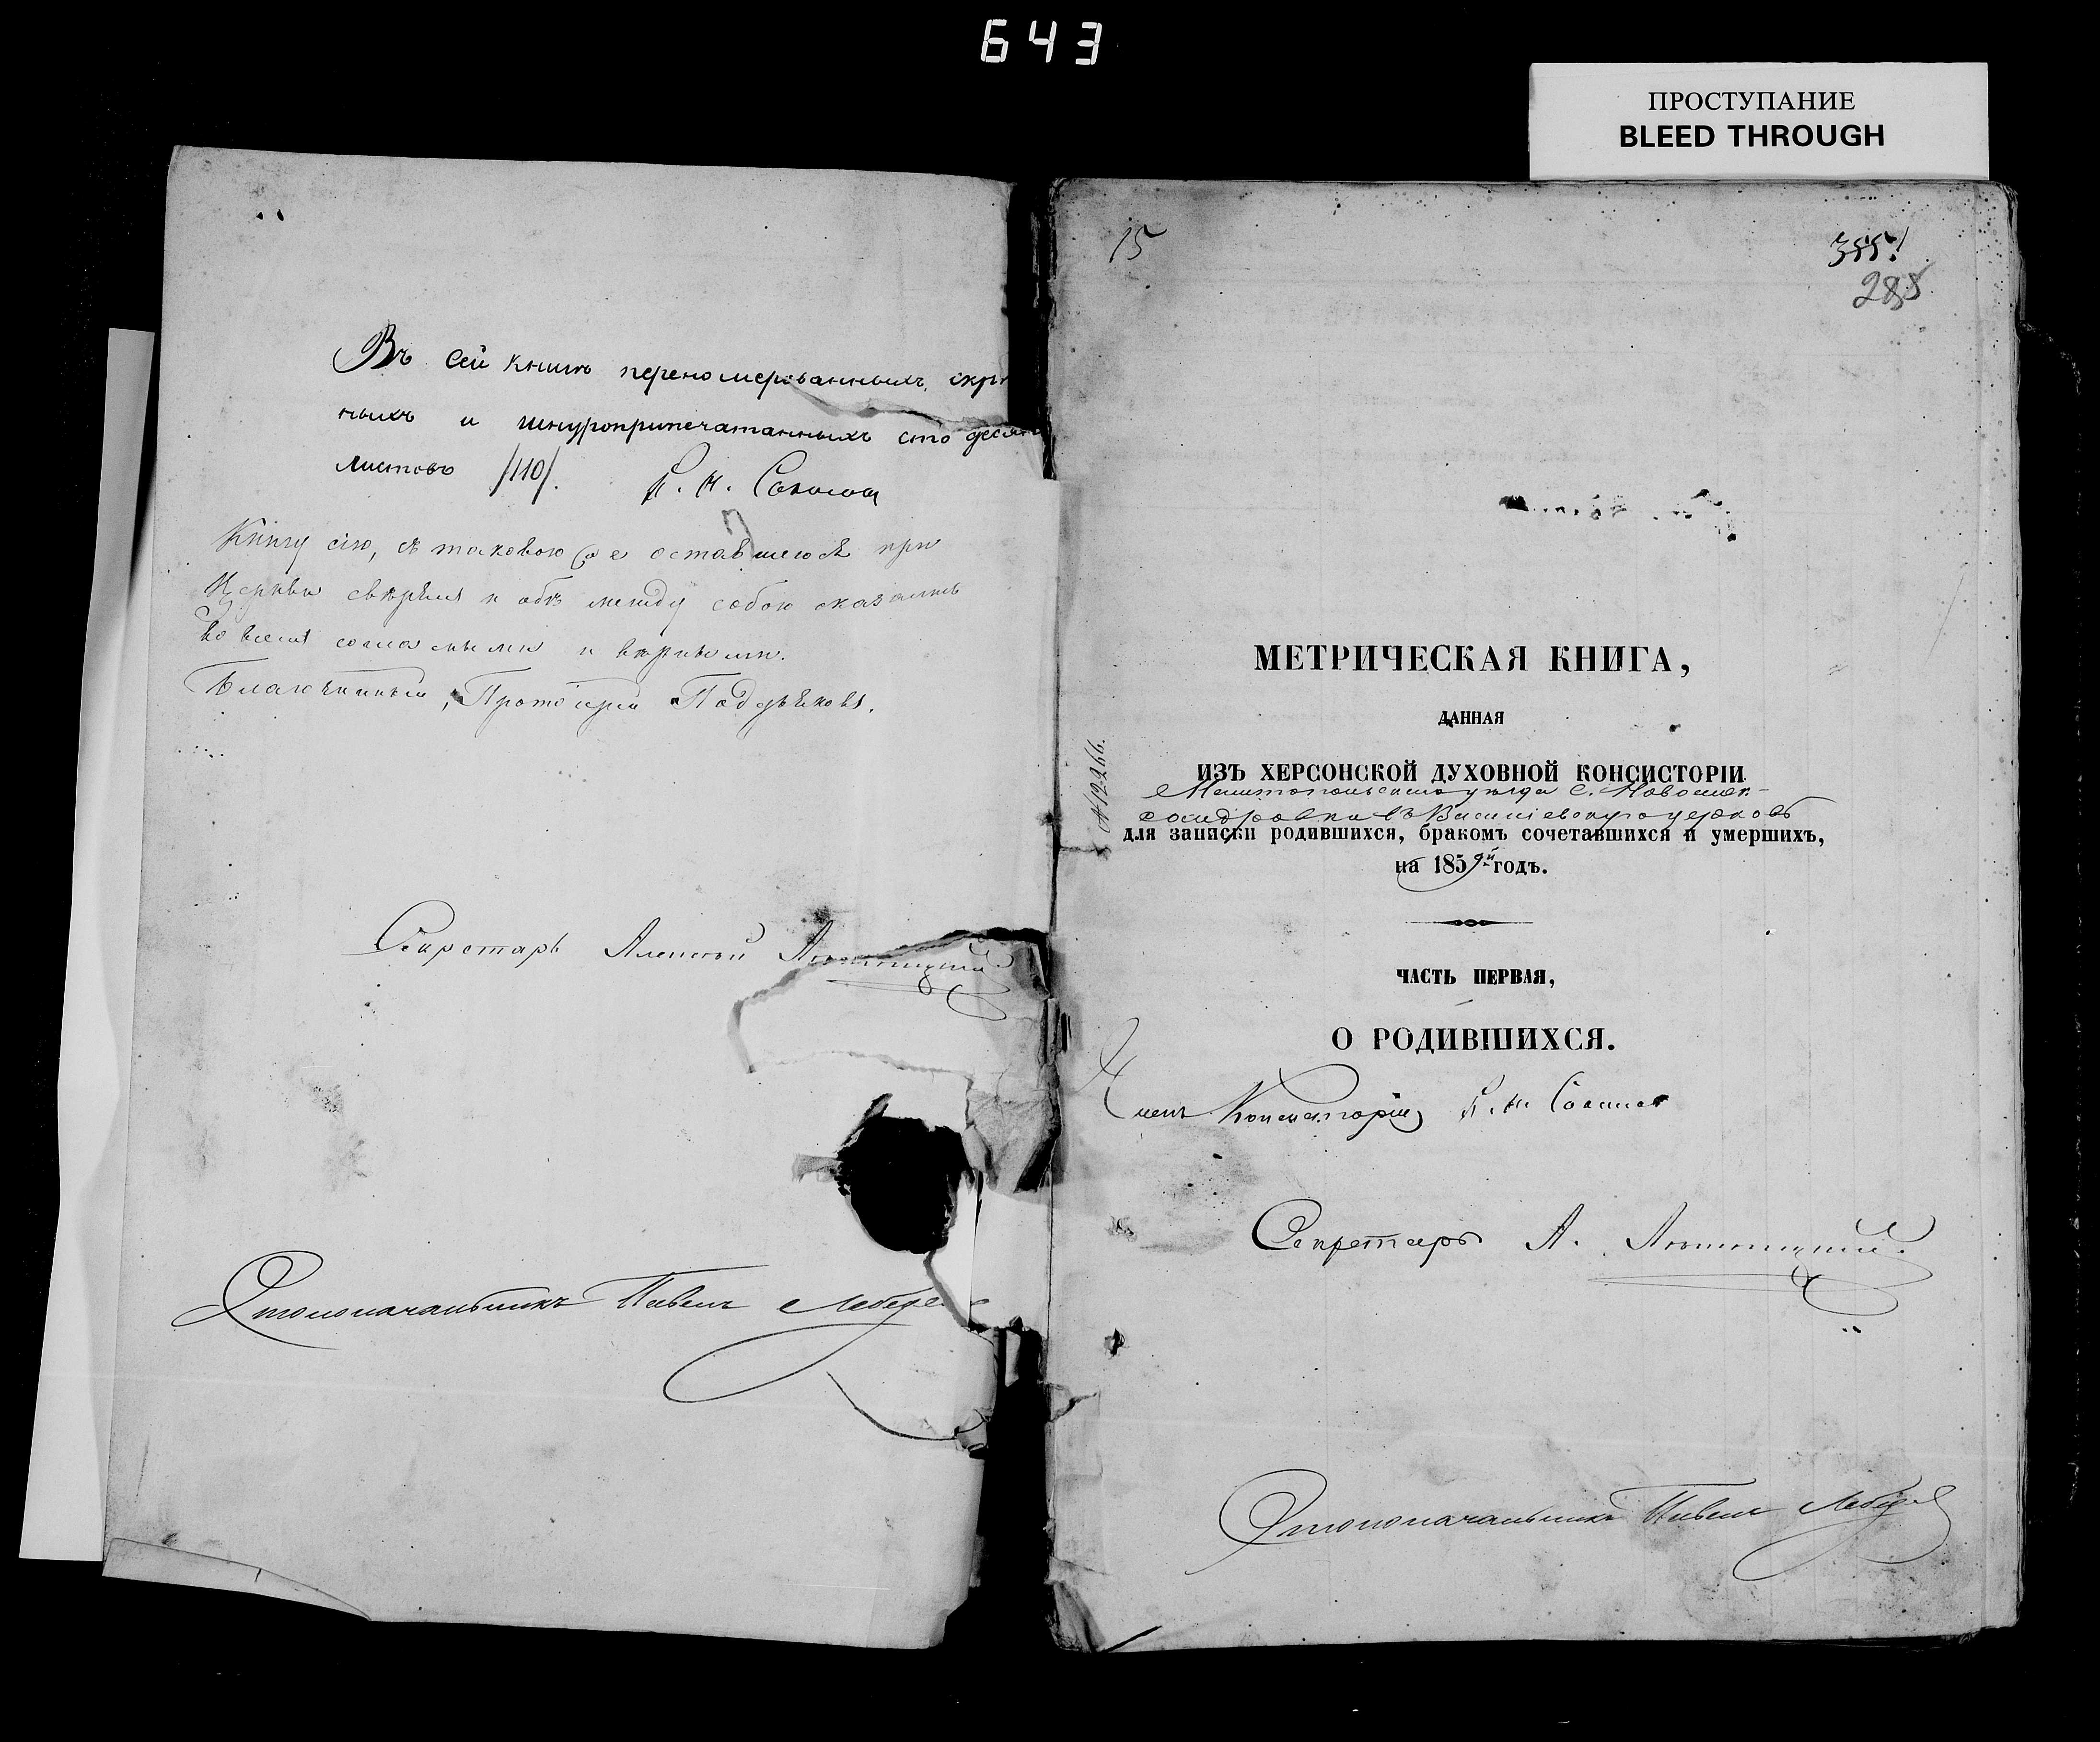 643
ПРОСТУПАНИЕ
BLEED THROUGH
Въ сей книгѣ перенумерованныхъ, скрѣ
ныхъ и шнуроприпечатанныхъ сто десять
листовъ /110/.
Книгу сію, съ таковою же оставшеюся при
Церкви свѣрялъ и обѣ между собою оказались
во всемъ согласными и вѣрными.
Благочинный, Протоіерей
Секретарь Алексѣй
Столоначальникъ Павелъ Лебеде
15
355!
288
МЕТРИЧЕСКАЯ КНИГА,
ДАННАЯ
ИЗЪ ХЕРСОНСКОЙ ДУХОВНОЙ КОНСИСТОРІИ
Мелитопольскаго уѣзда С. Новоалек-
сандровки въ Василіевскую церковь
для записки родившихся, бракомъ сочетавшихся и умершихъ,
на 1859й годъ.
№ 12266.
ЧАСТЬ ПЕРВАЯ,
О РОДИВШИХСЯ.
Членъ Консисторіи
Секретарь А.
Столоначальникъ Павелъ Лебедев